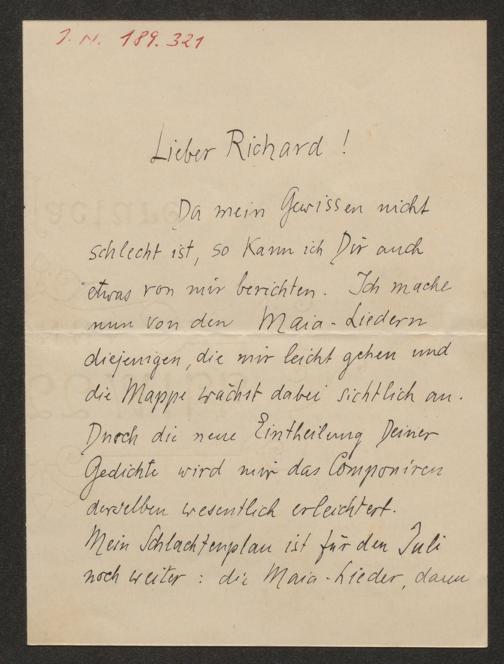 J. N. 189.321
Lieber Richard !
Da mein Gewissen nicht
schlecht ist, so kann ich Dir auch
etwas von mir berichten. Ich mache
nun von den Maia-Liedern
diejenigen, die mir leicht gehen und
die Mappe wächst dabei sichtlich an.
Durch die neue Eintheilung Deiner
Gedichte wird mir das Componiren
derselben wesentlich erleichtert.
Mein Schlachtenplan ist für den Juli
noch weiter : die Maia-Lieder, dann